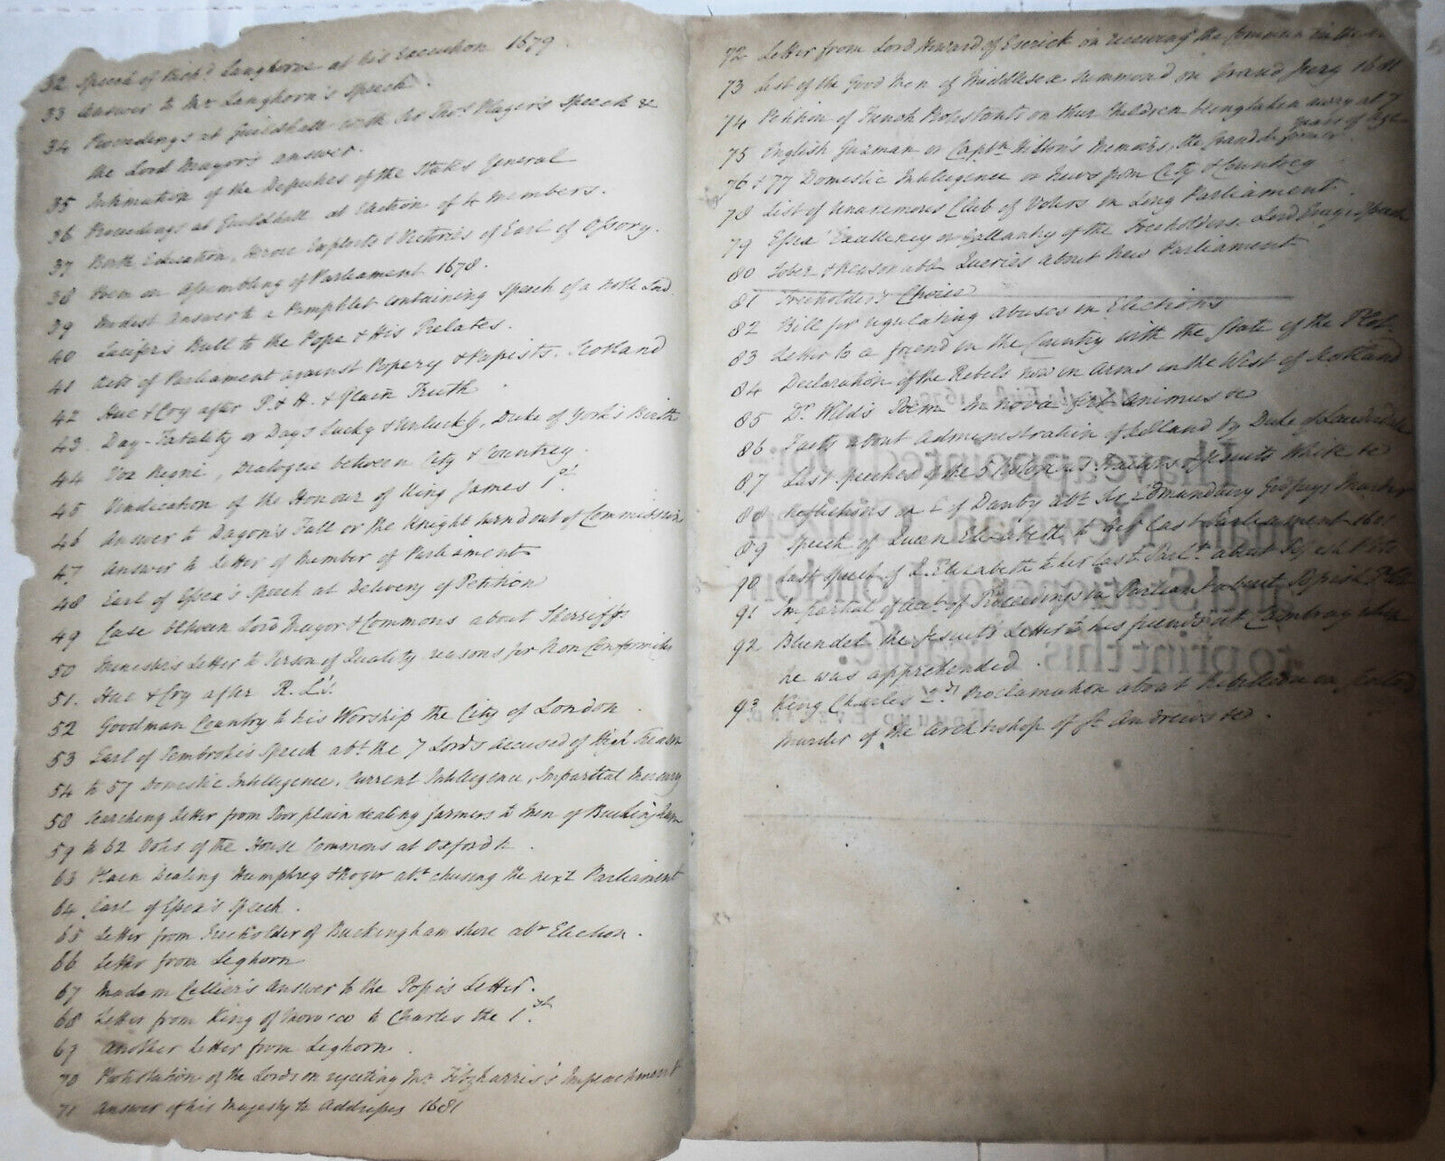 32 Speech of Rich.d Langhorne at his Execution 1679.
33 Answer to Mr Langhorn's Speech.
34 Proceedings at Guildhall with Sir Tho.s Player's Speech &
the Lord Mayor's answer.
35 Intimation of the Deputies of the States General
36 Proceedings at Guildhall at Election of 4 Members.
37 Birth Education, Heroic Exploits & Victories of Earl of Ossory.
38 Poem on Assembling of Parliament 1678.
39 Modest Answer to a Pamphlet containing Speech of a Noble Lord
40 Lucifer's Bull to the Pope & His Prelates.
41 Acts of Parliament against Popery & Papists. Scotland
42 Hue & Cry after P. & H. & Plain Truth
43. Day-Fatality or Days Lucky & Unlucky, Duke of York's Birth
44 Vox Regni, Dialogue between City & Country.
45 Vindication of the Honour of King James 1st.
46 Answer to Dagon's Fall or the Knight turnd out of Commission
47 Answer to Letter of Member of Parliament
48 Earl of Essex's Speech at Delivery of Petition
49 Case between Lord Mayor & Commons about Sherriffs
50 Minister's Letter to Person of Quality reasons for Non Conformity
51. Hue & Cry after R. L's.
52 Goodman Country to his Worship the City of London.
53 Earl of Pembroke's Speech abt. the 7 Lords accused of High Treason
54 to 57 Domestic Intelligence, Current Intelligence, Impartial Mercury
58 Searching Letter from Poor plain dealing farmers to Men of Buckingham
59 to 62 Votes of the House Commons at Oxford &.
63 Plain Dealing Humphrey & Roger abt. chusing the next Parliament
64 Earl of Essex's Speech.
65 Letter from Freeholder of Buckingham shire abt Election.
66 Letter from Leghorn
67 Madam Cellier's Answer to the Pope's Letter.
68 Letter from King of Morocco to Charles the 1.st
69 Another Letter from Leghorn.
70 Protestation of the Lords on rejecting Mr. Fitzharris's Impeachment
71 Answer of his Majesty to Addresses 1681
72 Letter from Lord Howard of Escrick on receiving the Communion in the
73 List of the Good Men of Middlesex summond on Grand Jury 1681
74 Petition of French Protestants on their Children being taken away at 7
years of Age
75 English Guzman or Captn Hilton's Memoirs, the Grand Informer
76 & 77 Domestic Intelligence or News from City & Country
78 List of Unanimous Club of Voters in Long Parliament.
79 Essex' Excellency or Gallantry of the Freeholders. Lord Gray's Speech
80 Sober & Reasonable Queries about New Parliament
81 Freeholder's Choice
82 Bill for regulating Abuses in Elections
83 Letter to a friend in the Country with the State of the Plot.
84 Declaration of the Rebels now in Arms in the West of Scotland
85 Dr. Wild's Poem In nova fert animus &c
86 Facts about Administration of Scotland by Duke of Lauderdale
87 Last Speeches of the 5 Jesuits White &c
88 Reflections on E of Danby abt. Sr Edmundbury Godfrey's Murder
89 Speech of Queen Elizabeth to her last Parliament 1601
90 Last Speech of Q. Elizabeth to her last Parlt. about Popish Plots
91 Impartial Acct. of Proceedings in Parliamt about Popish Plots
92 Blundel the Jesuit's Letter to his friends at Cambray when
he was apprehended.
93 King Charles 2nd Proclamation about Rebellion in Scotland
Murder of the Archbishop of St Andrews &c.
I have appointed Dor-
man Newman, Citizen
and Stationer of London
to print this